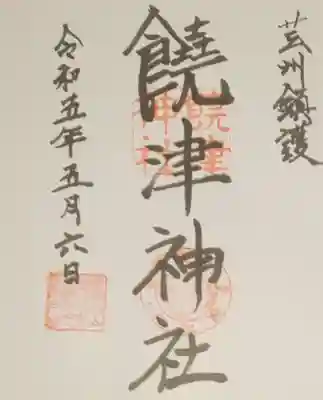 芸州鎮護
饒津神社
令和五年五月六日
饒津
神社